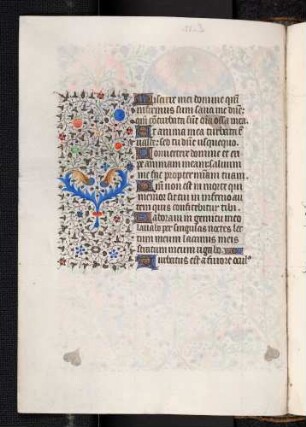 Miserere mei domine qm̄
infirmus sum sana me dn̄e:
qm̄ cōturbata sūt oīa ossa mea.
Et anima mea turbata ē
valde: sed tu dn̄e usquequo.
Conuertere domine et eri
pe animam meam: saluum
me fac propter mīam tuam.
Qm̄ non est in morte qui
memor sit tui: in inferno au
tem quis confitebitur tibi.
Laboraui in gemitu meo
lauabo per singulas noctes lec
tum meum lacrimis meis
stratum meum rigabo.
Turbatus est a furore ocul9